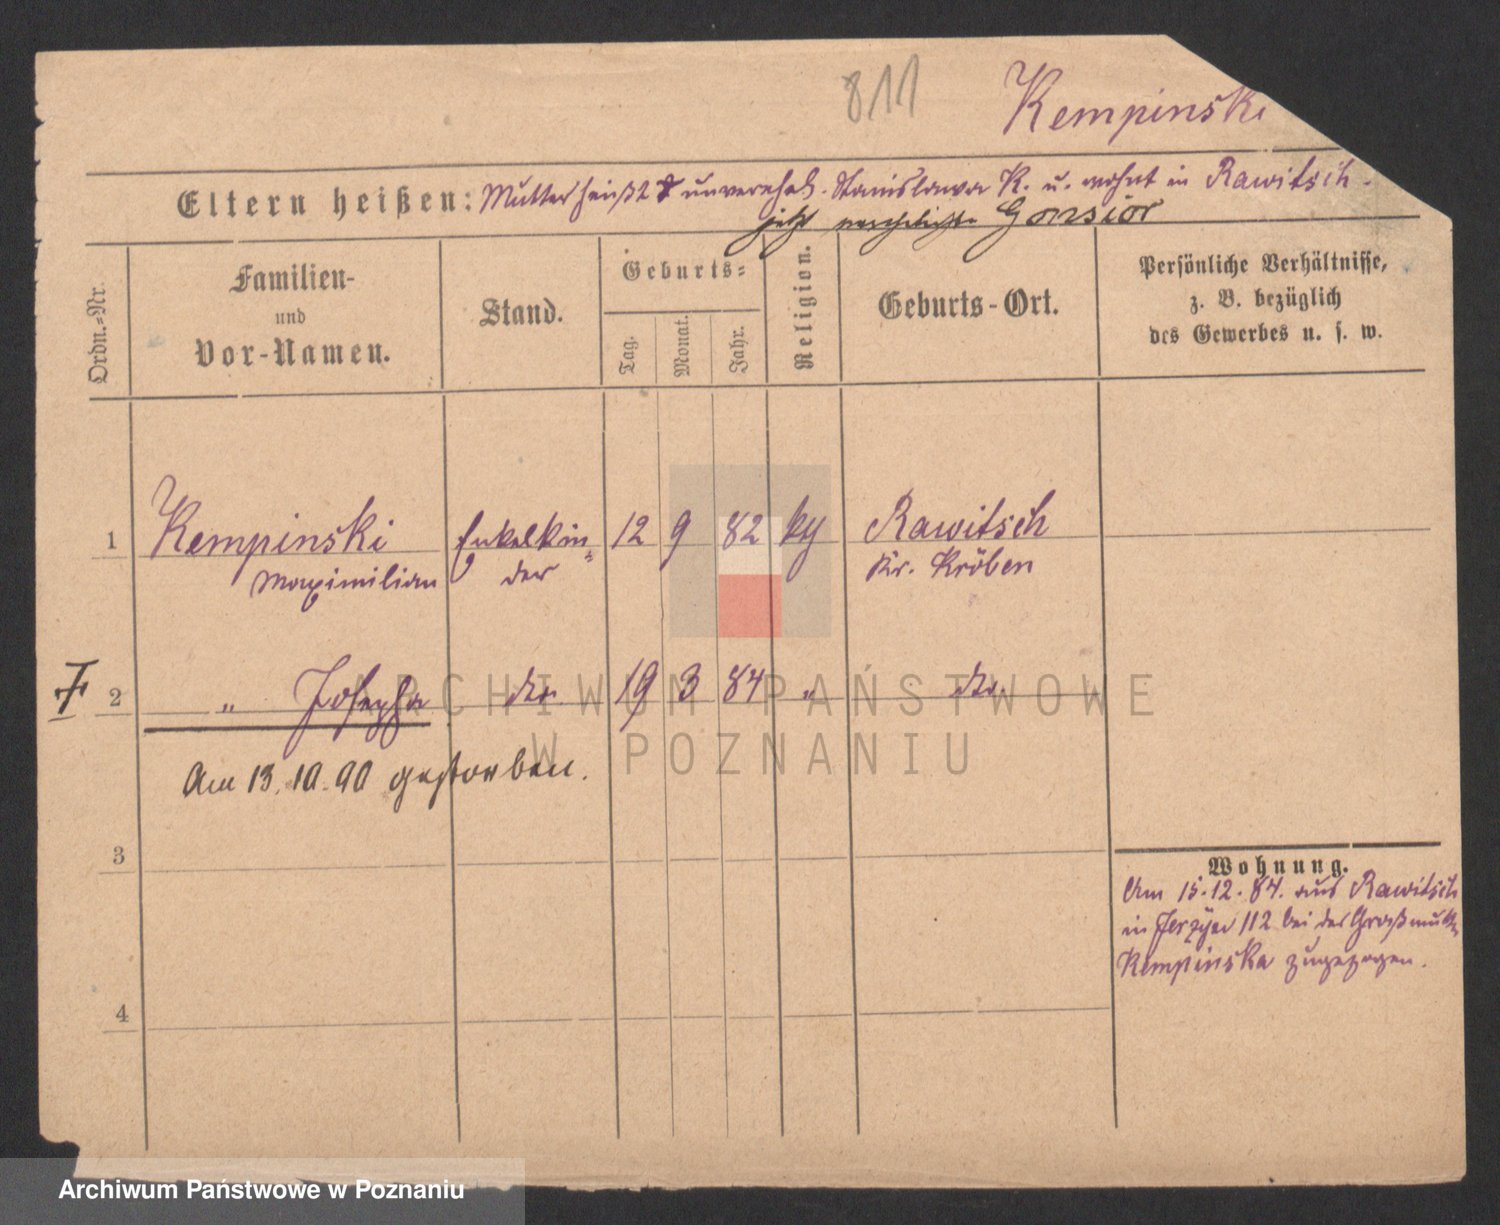 811
Kempinski
Eltern heißen: Mutter heißt unverehel. Stanislawa K. u. wohnt in Rawitsch.
jetzt verehelichte Gonsior
Ordn.-Nr.
Familien- und Vor-Namen.
Stand.
Geburts-
Tag.
Monat.
Jahr.
Religion.
Geburts-Ort.
Persönliche Verhältnisse,
z. B. bezüglich
des Gewerbes u. s. w.
1 Kempinski Enkelkin- 12 9 82 kg Rawitsch
Maximilian der Kr. Kröben
2 " Josepha dto. 19 3 84 " dto.
Am 13.10.90 gestorben.
3
4
Wohnung.
Am 15.12.84. aus Rawitsch
in Jerzyce 112 bei der Großmutter
Kempinska zugezogen.
ARCHIWUM PAŃSTWOWE
W POZNANIU
Archiwum Państwowe w Poznaniu